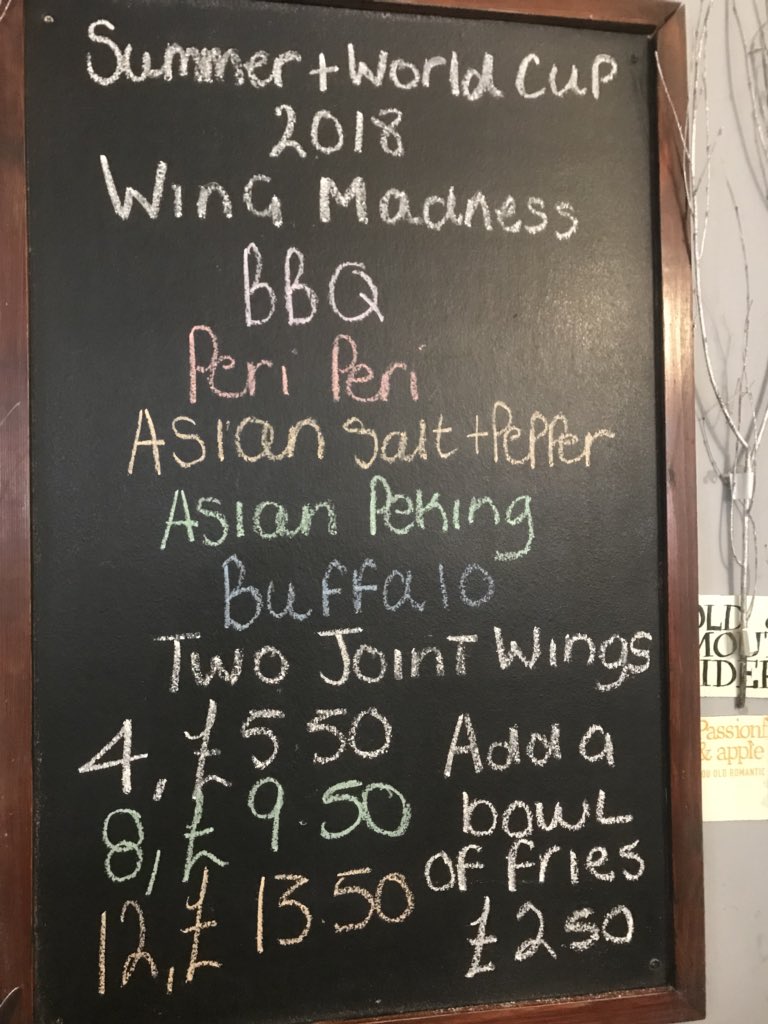 Summer + World Cup
2018
Wing Madness
BBQ
Peri Peri
Asian Salt + Pepper
Asian Peking
Buffalo
Two Joint Wings
4, £5 50
8, £9.50
12, £13.50
Add a
bowl
of fries
£2 50
OLD
MOUT
IDER
Passionf
& apple
OU OLD ROMANTIC